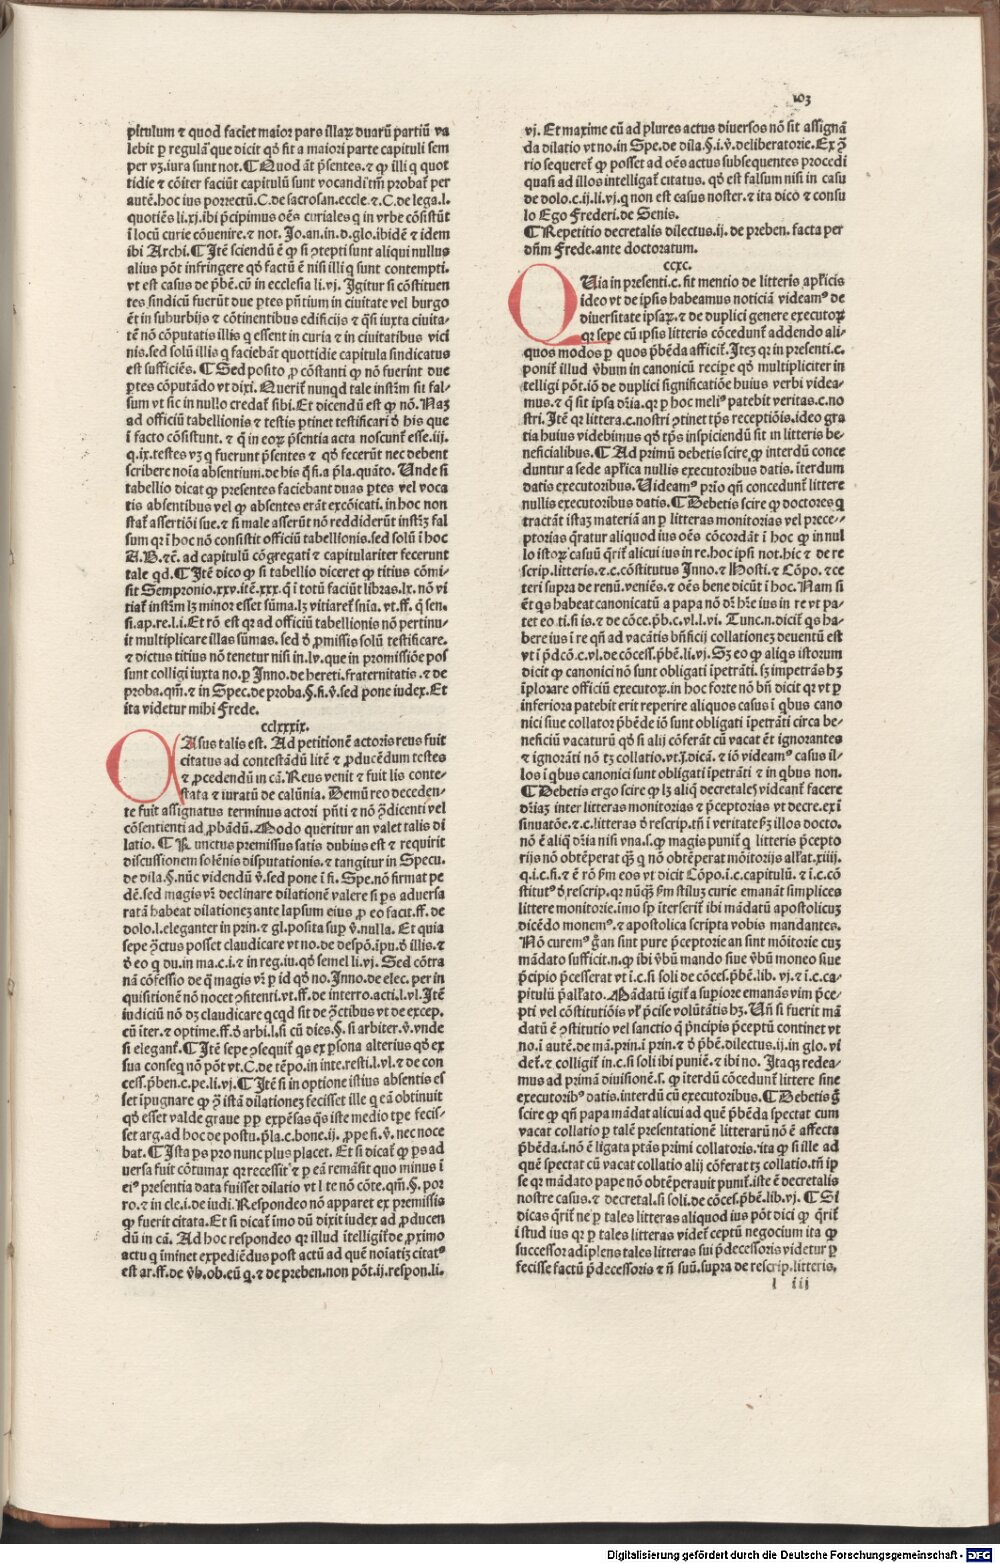 103
pitulum ⁊ quod faciet maior pars illaꝝ duarũ partiũ va
lebit ꝑ regulã que dicit qđ fit a maiori parte capituli sem
per vꝫ.iura sunt not. ¶ Quod aũt p̃sentes.⁊ ꝙ illi q̃ quot
tidie ⁊ cõiter faciũt capitulũ sunt vocandi tm̃ probat̃ per
autẽ.hoc ius porrectũ.C.de sacrosan.eccle.⁊.C.de lega.l.
quotiẽs li.xj.ibi p̃cipimus oẽs curiales q̃ in vrbe cõsistũt
ĩ locũ curie cõuenire.⁊ not. Jo.an.in.d.glo.ibidẽ ⁊ idem
ibi Archi. ¶ Itẽ sciendũ ẽ ꝙ si ꝯtepti sunt aliqui nullus
alius põt infringere qđ factũ ẽ nisi illi q̃ sunt contempti.
vt est casus de p̃bẽ.cũ in ecclesia li.vj. Igitur si cõstituen
tes sindicũ fuerũt due ꝑtes p̃ntium in ciuitate vel burgo
ẽt in suburbijs ⁊ cõtinentibus edificijs ⁊ q̃si iuxta ciuita-
tẽ nõ cõputatis illis q̃ essent in curia ⁊ in ciuitatibus vici
nis.sed solũ illis q̃ faciebãt quottidie capitula sindicatus
est sufficiẽs. ¶ Sed posito ꝓ cõstanti ꝙ nõ fuerint due
ꝑtes cõputãdo vt dixi. Querit̃ nunqd tale instr̃m sit fal-
sum vt sic in nullo credat̃ sibi. Et dicendũ est ꝙ nõ. Naꝫ
ad officiũ tabellionis ⁊ testis ptinet testificari đ his que
ĩ facto cõsistunt. ⁊ q̃ in eoꝝ p̃sentia acta noscunt̃ esse.iij.
q.ix.testes vꝫ q̃ fuerunt p̃sentes ⁊ qđ fecerũt nec debent
scribere noĩa absentium.de his q̃ fi.a p̃la.quãto. Unde si
tabellio dicat ꝙ presentes faciebant duas ꝑtes vel voca
tis absentibus vel ꝙ absentes erãt excõicati.in hoc non
stat̃ assertiõi sue.⁊ si male asserũt nõ reddiderũt instrꝫ fal
sum qꝛ ĩ hoc nõ consistit officiũ tabellionis.sed solũ ĩ hoc
A.B.⁊ẽ. ad capitulũ cõgregati ⁊ capitulariter fecerunt
tale qd. ¶ Itẽ dico ꝙ si tabellio diceret ꝙ titius cõmi-
sit Sempronio.xxv.itẽ.xxx.q̃ ĩ totũ faciũt libras.lx. nõ vi
tiat̃ instr̃m lꝫ minor esset sũma.lꝫ vitiaret̃ sñia. vt.ff. q̃ sen.
si.ap.re.l.i. Et rõ est qꝛ ad officiũ tabellionis nõ pertinu-
it multiplicare illas sũmas. sed đ ꝓmissis solũ testificare.
⁊ dictus titius nõ tenetur nisi in.lv.que in promissiõe pos
sunt colligi iuxta no.ꝑ Inno.de hereti.fraternitatis.⁊ de
proba.qm̃.⁊ in Spec.de proba.§.fi.v̉.sed pone iudex. Et
ita videtur mihi Frede.
cclxxxix.
CAsus talis est. Ad petitionẽ actoris reus fuit
citatus ad contestãdũ litẽ ⁊ ꝓducẽdum testes
⁊ ꝓcedendũ in cã. Reus venit ⁊ fuit lis conte-
stata ⁊ iuratũ de calũnia. Demũ reo deceden-
te fuit assignatus terminus actori p̃nti ⁊ nõ ꝯ̃dicenti vel
cõsentienti ad ꝓbãdũ. Modo queritur an valet talis di
latio. ¶ Punctus premissus satis dubius est ⁊ requirit
discussionem solẽnis disputationis.⁊ tangitur in Specu.
de dila.§.nũc videndũ v̉.sed pone ĩ fi. Spe.nõ firmat pe
dẽ.sed magis vr̃ declinare dilationẽ valere si ps aduersa
ratã habeat dilationeꝫ ante lapsum eius ꝓ eo facit.ff.de
dolo.l.eleganter in prin.⁊ gl.posita suꝑ v̉.nulla. Et quia
sepe ꝯ̃ctus posset claudicare vt no.de despõ.ipu.đ illis.⁊
đ eo q̃ du.in ma.c.i.⁊ in reg.iu.qđ semel li.vj. Sed cõtra
nã cõfessio de q̃ magis vr̃ ꝑ id qđ no.Inno.de elec. per in
quisitionẽ nõ nocet ꝯfitenti.vt.ff.de interro.acti.l.vl. Itẽ
iudiciũ nõ dꝫ claudicare qcqd sit de ꝯ̃ctibus vt de excep.
cũ iter.⁊ optime.ff.đ arbi.l.si cũ dies.§.si arbiter.v̉.vnde
si elegant̃. ¶ Itẽ sepe ꝯsequit̃ qs ex ꝑsona alterius qđ ex
sua conseq nõ põt vt.C.de tẽpo.in inte.resti.l.vl.⁊ de con
cess.p̃ben.c.pe.li.vj. ¶ Itẽ si in optione istius absentis es
set ĩpugnare ꝙ ꝑ istã dilationeꝫ fecisset ille q̃ eã obtinuit
qđ esset valde graue ꝑꝑ expẽsas q̃s iste medio tꝑe fecis-
set arg.ad hoc de postu.p̃la.c.bone.ij. ꝓpe fi.v̉.nec noce
bat. ¶ Ista ps pro nunc plus placet. Et si dicat̃ ꝙ ps ad
uersa fuit cõtumax qꝛ recessit ⁊ ꝑ eã remãsit quo minus ĩ
eiꝰ presentia data fuisset dilatio vt l te nõ cõte.qm̃.§. por
ro.⁊ in cle.i.de iudi. Respondeo nõ apparet ex premissis
ꝙ fuerit citata. Et si dicat̃ imo dũ dixit iudex ad ꝓducen
dũ in cã. Ad hoc respondeo qꝛ illud ĩtelligit̃ de ꝓximo
actu q̃ iminet expediẽdus post actũ ad quẽ noĩatiꝫ citatꝰ
est ar.ff.de v̉b.ob.eũ q̃.⁊ de preben.non põt.ij.respon.li.
vj. Et maxime cũ ad plures actus diuersos nõ sit assignã
da dilatio vt no.in Spe.de dila.§.i.v̉.deliberatorie. Ex ꝯ̃
rio sequeret̃ ꝙ posset ad oẽs actus subsequentes procedi
quasi ad illos intelligat̃ citatus. qđ est falsum nisi in casu
de dolo.c.ij.li.vj.q̃ non est casus noster.⁊ ita dico ⁊ consu
lo Ego Frederi.de Senis.
¶ Repetitio decretalis dilectus.ij. de preben. facta per
dñm Frede.ante doctoratum.
ccxc.
QUia in presenti.c.fit mentio de litteris apl̃icis
ideo vt de ipsis habeamus noticiã videamꝰ de
diuersitate ipsaꝝ.⁊ de duplici genere executoꝝ
qꝛ sepe cũ ipsis litteris cõcedunt̃ addendo ali-
quos modos ꝑ quos p̃bẽda afficit̃. Iteꝫ qꝛ in presenti.c.
ponit̃ illud v̉bum in canonicũ recipe qđ multipliciter in
telligi põt.iõ de duplici significatiõe huius verbi videa-
mus.⁊ q̃ sit ipsa dr̃ia.qꝛ ꝑ hoc meliꝰ patebit veritas.c.no
stri. Itẽ qꝛ littera.c.nostri ꝯtinet tp̃s receptiõis.ideo gra
tia huius videbimus qđ tp̃s inspiciendũ sit in litteris be-
neficialibus. ¶ Ad primũ debetis scire ꝙ interdũ conce
duntur a sede apl̃ica nullis executoribus datis. iterdum
datis executoribus. Uideamꝰ prĩo qñ concedunt̃ littere
nullis executoribus datis. ¶ Debetis scire ꝙ doctores q̃
tractãt istaꝫ materiã an ꝑ litteras monitorias vel prece-
ptorias q̃ratur aliquod ius oẽs cõcordãt ĩ hoc ꝙ in nul
lo istoꝝ casuũ q̃rit̃ alicui ius in re.hoc ipsi not.hic ⁊ de re
scrip.litteris.⁊.c.cõstitutus Inno.⁊ Hosti.⁊ Cõpo.⁊ ce
teri supra de renũ.veniẽs.⁊ oẽs bene dicũt ĩ hoc. Nam si
ẽt qs habeat canonicatũ a papa nõ dr̃ hr̃e ius in re vt pa-
tet eo.ti.si is.⁊ de cõce.p̃b.c.vl.l.vi. Tunc.n.dicit̃ qs ha-
bere ius ĩ re qñ ad vacãtis bñficij collationeꝫ deuentũ est
vt ĩ p̃dcõ.c.vl.de cõcess.p̃bẽ.li.vj. Sꝫ eo ꝙ aliqs istorum
dicit ꝙ canonici nõ sunt obligati ĩpetrãti. sꝫ impetrãs hꝫ
ĩplorare officiũ executoꝝ.in hoc forte nõ bñ dicit qꝛ vt ꝑ
inferiora patebit erit reperire aliquos casus ĩ qbus cano
nici siue collator p̃bẽde iõ sunt obligati ĩpetrãti circa be-
neficiũ vacaturũ qđ si alij cõferãt cũ vacat ẽt ignorantes
⁊ ignorãti nõ tꝫ collatio.vt.ĵ.dicã. ⁊ iõ videamꝰ casus il-
los ĩ qbus canonici sunt obligati ĩpetrãti ⁊ in qbus non.
¶ Debetis ergo scire ꝙ lꝫ aliq̃ decretaleſ videant̃ facere
dr̃iaꝫ inter litteras monitorias ⁊ p̃ceptorias vt decre.ex ĩ
sinuatõe.⁊.c.litteras đ rescrip.tñ ĩ veritate ẞꝫ illos docto.
nõ ẽ aliq̃ dr̃ia nisi vna.s.ꝙ magis punit̃ q̃ litteris p̃cepto
rijs nõ obtẽperat qꝫ̃ q̃ nõ obtẽperat mõitorijs all̃at.xiiij.
q.i.c.fi.⁊ ẽ rõ ẞm eos vt dicit Cõpo.i.c.capitulũ.⁊ ĩ c.cõ
stitutꝰ đ rescrip.qꝛ nũqꝫ̃ ẞm stiluꝫ curie emanãt simplices
littere monitorie.imo sꝑ ĩterserit̃ ibi mãdatũ apostolicuꝫ
dicẽdo monemꝰ.⁊ apostolica scripta vobis mandantes.
Nõ curemꝰ g̃ an sint pure p̃ceptorie an sint mõitorie cuꝫ
mãdato sufficit.n.ꝙ ibi v̉bũ mando siue v̉bũ moneo siue
p̃cipio p̃cesserat vt ĩ c.si soli de cõces.p̃bẽ.lib. vj.⁊ ĩ c.ca-
pitulũ p̃all̃ato. Mãdatũ igit̃ a supiore emanãs vim p̃ce-
pti vel cõstitutiõis vl̃ p̃cise volũtãtis hꝫ. Uñ si fuerit mã
datũ ẽ ꝯstitutio vel sanctio q̃ p̃ncipis p̃ceptũ continet vt
no.ĩ autẽ.de mã.prin.ĩ prin.⁊ đ p̃bẽ.dilectus.ij.in glo. vi
det̃.⁊ colligit̃ in.c.si soli ibi puniẽ.⁊ ibi no. Itaqꝫ redea-
mus ad primã diuisionẽ.s. ꝙ ĩterdũ cõcedunt̃ littere sine
executoribꝰ datis.interdũ cũ executoribus. ¶ Debetis g̃
scire ꝙ qñ papa mãdat alicui ad quẽ p̃bẽda spectat cum
vacat collatio ꝑ talẽ presentationẽ litterarũ nõ ẽ affecta
p̃bẽda.i.nõ ẽ ligata ptãs primi collatoris.ita ꝙ si ille ad
quẽ spectat cũ vacat collatio alij cõferat tꝫ collatio.tñ ip
se qꝛ mãdato pape nõ obtẽperauit punit̃.iste ẽ decretalis
nostre casus.⁊ decretal.si soli.de cõces.p̃bẽ.lib.vj. ¶ Si
dicas q̃rit̃ ne ꝑ tales litteras aliquod ius põt dici ꝙ q̃rit̃
ĩ stud ius qꝛ ꝑ tales litteras videt̃ ceptũ negocium ita ꝙ
successor adiplens tales litteras sui p̃decessoris videtur ꝑ
fecisse factũ p̃decessoris ⁊ ñ suũ.supra de rescrip.litteris.
l iii
Digitalisierung gefördert durch die Deutsche Forschungsgemeinschaft - DFG